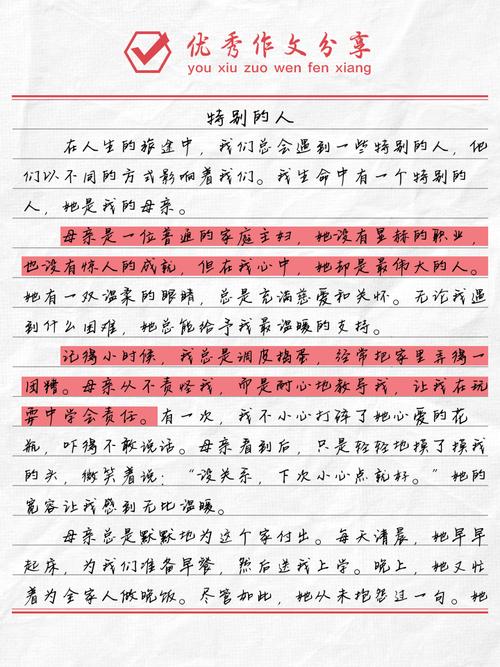 优秀作文分享
you xiu zuo wen fen xiang
特别的人
在人生的旅途中，我们总会遇到一些特别的人，他
们以不同的方式影响着我们。我生命中有一个特别的
人，她是我的母亲。
母亲是一位普通的家庭主妇，她没有显赫的职业，
也没有惊人的成就，但在我心中，她却是最伟大的人。
她有一双温柔的眼睛，总是充满慈爱和关怀。无论我遇
到什么困难，她总能给予我最温暖的支持。
记得小时候，我总是调皮捣蛋，经常把家里弄得一
团糟。母亲从不责怪我，而是耐心地教导我，让我在玩
耍中学会责任。有一次，我不小心打碎了她心爱的花
瓶，吓得不敢说话。母亲看到后，只是轻轻地摸了摸我
的头，微笑着说：“没关系，下次小心点就好。”她的
宽容让我感到无比温暖。
母亲总是默默地为这个家付出。每天清晨，她早早
起床，为我们准备早餐，然后送我上学。晚上，她又忙
着为全家人做晚饭。尽管如此，她从未抱怨过一句。她